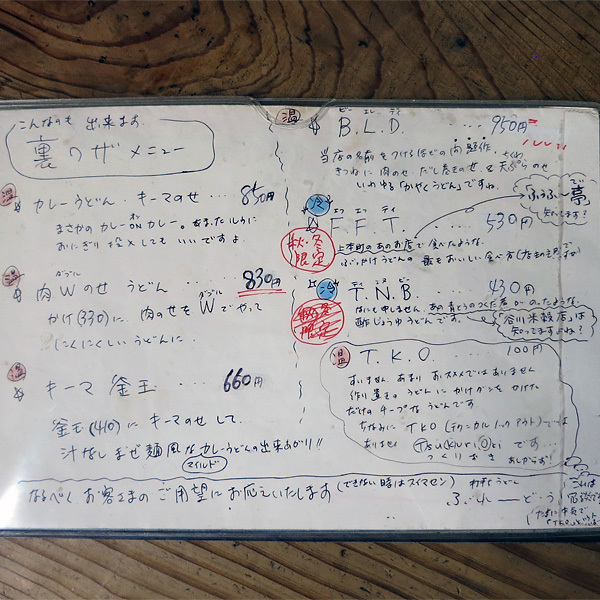 こんなのも 出来ます
裏ワザメニュー
温 カレーうどん・キーマのせ ... 850円
まさかのカレー ON カレー。あまったルウに
おにぎり投入してもいいですよ
温 肉Wのせ うどん ... 830円
ダブル
かけ(330)に 肉のせを Wでやって
ダブル
にくにくしい うどんに
温 キーマ 釜玉 ... 660円
釜玉(410)に キーマのせ して
汁なし まぜ麺風な カレーうどんの出来あがり!!
マイルド
温 B.L.D. ... 950円
ビー エレ ディ
当店の名前を つけるほどの
きつねに 肉のせ、だし巻きのせ、と 天ぷらのせ
いわゆる「かやくうどん」ですね。
冷 F.F.T. ... 530円
エフ エフ ティ
秋・冬
限定
上本町のあのお店で食べたような、
ぶっかけうどんの 最もおいしい食べ方
ふぅふぅ亭
知ってます?
冷 T.N.B. ... 430円
ティ エヌ ビー
限定
ないも申しません あの青とうのつくだ煮が のったような、
酢じょうゆうどんです。
「谷川米穀店」は
知ってますよね?
温 T.K.O. ... 100円
すいません。あまり おススメではありません
作り置きの うどんに かけダシを かけた
だけの チープな うどんです
ちなみに TKO(テクニカルノックアウト)では
ありません Tsukuri Oki です...
つくりおき あしからず!
なるべく お客さまの ご用望に お応えいたします (できない時はスイマセン)